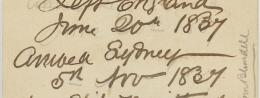 Left England
June 20th 1837
Arrived Sydney
5th Nov 1837